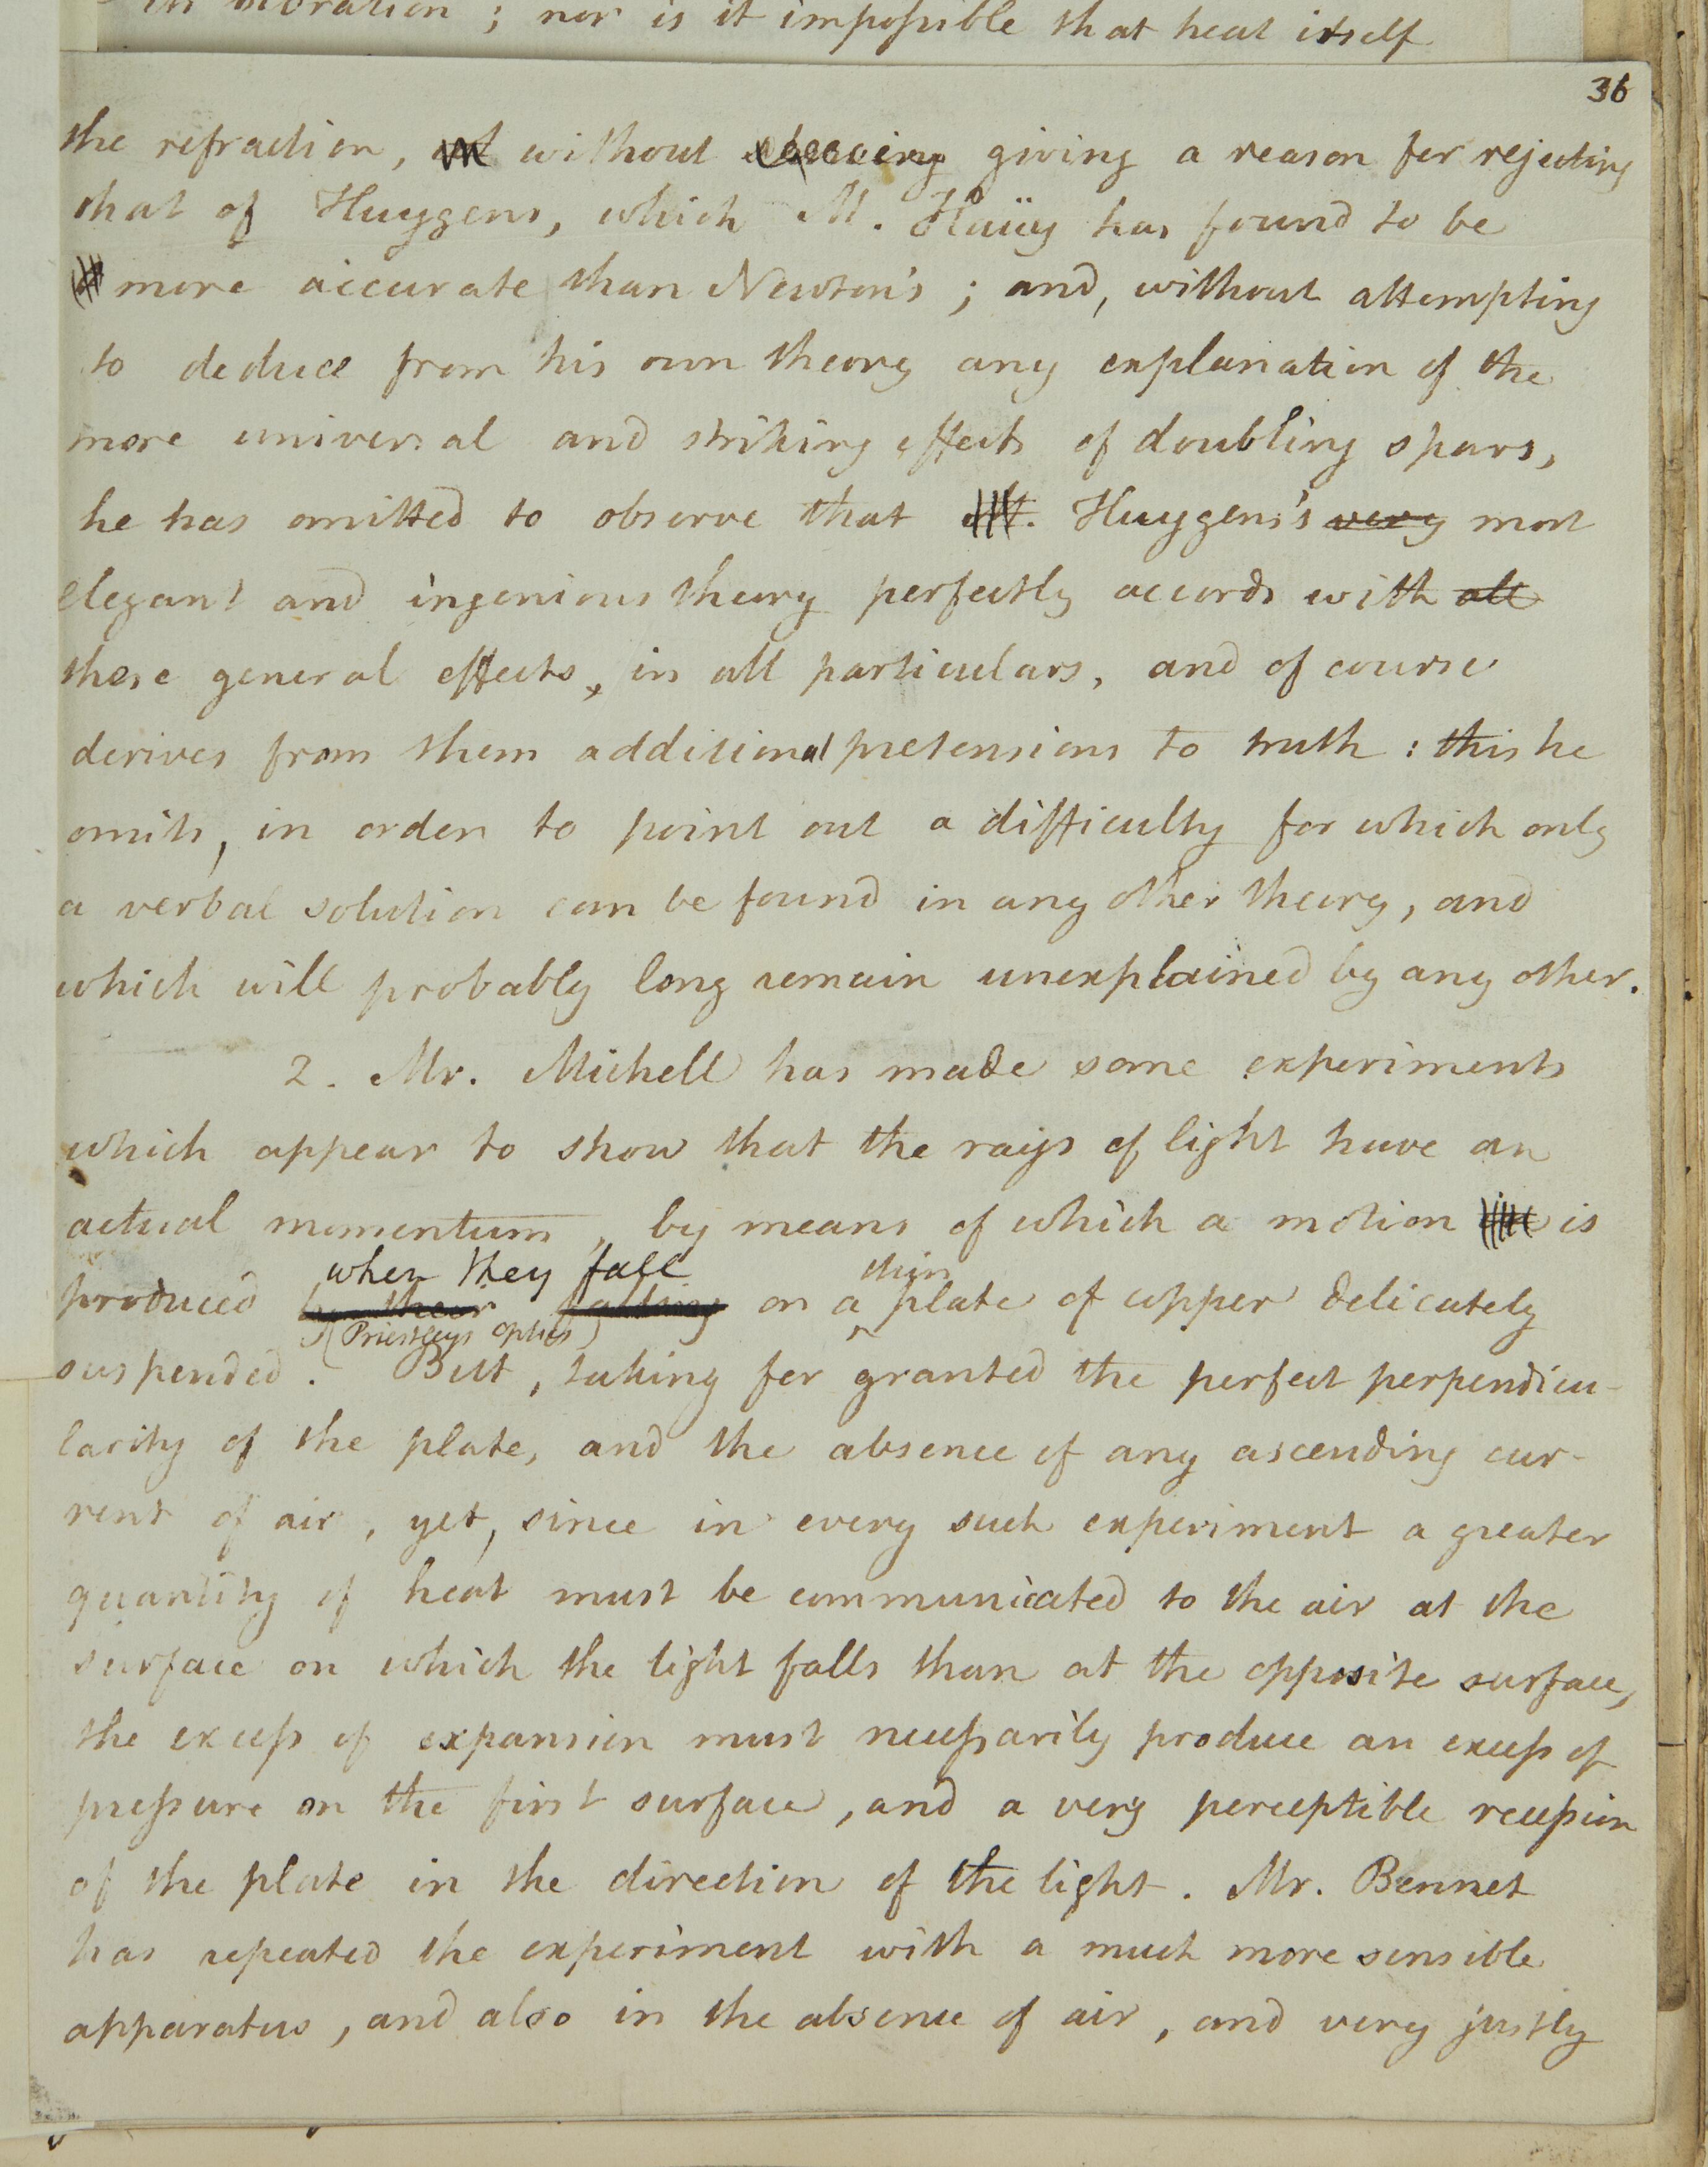 in vibration ; nor is it impossible that heat itself
36
the refraction, without giving a reason for rejecting
that of Huygens, which M. Haüy has found to be
more accurate than Newton's ; and, without attempting
to deduce from his own theory any explanation of the
more universal and striking effects of doubling spars,
he has omitted to observe that Huygens's very most
elegant and ingenious theory perfectly accords with all
these general effects, in all particulars, and of course
derives from them additional pretensions to truth : this he
omits, in order to point out a difficulty for which only
a verbal solution can be found in any other theory, and
which will probably long remain unexplained by any other.
2. Mr. Michell has made some experiments
which appear to show that the rays of light have an
actual momentum, by means of which a motion is
when they fall thin
produced by their falling on a plate of copper delicately
(Priestley's Optics)
suspended. But, taking for granted the perfect perpendicu-
larity of the plate, and the absence of any ascending cur-
rent of air, yet, since in every such experiment a greater
quantity of heat must be communicated to the air at the
surface on which the light falls than at the opposite surface,
the excess of expansion must necessarily produce an excess of
pressure on the first surface, and a very perceptible recession
of the plate in the direction of the light. Mr. Bennet
has repeated the experiment with a much more sensible
apparatus, and also in the absence of air, and very justly